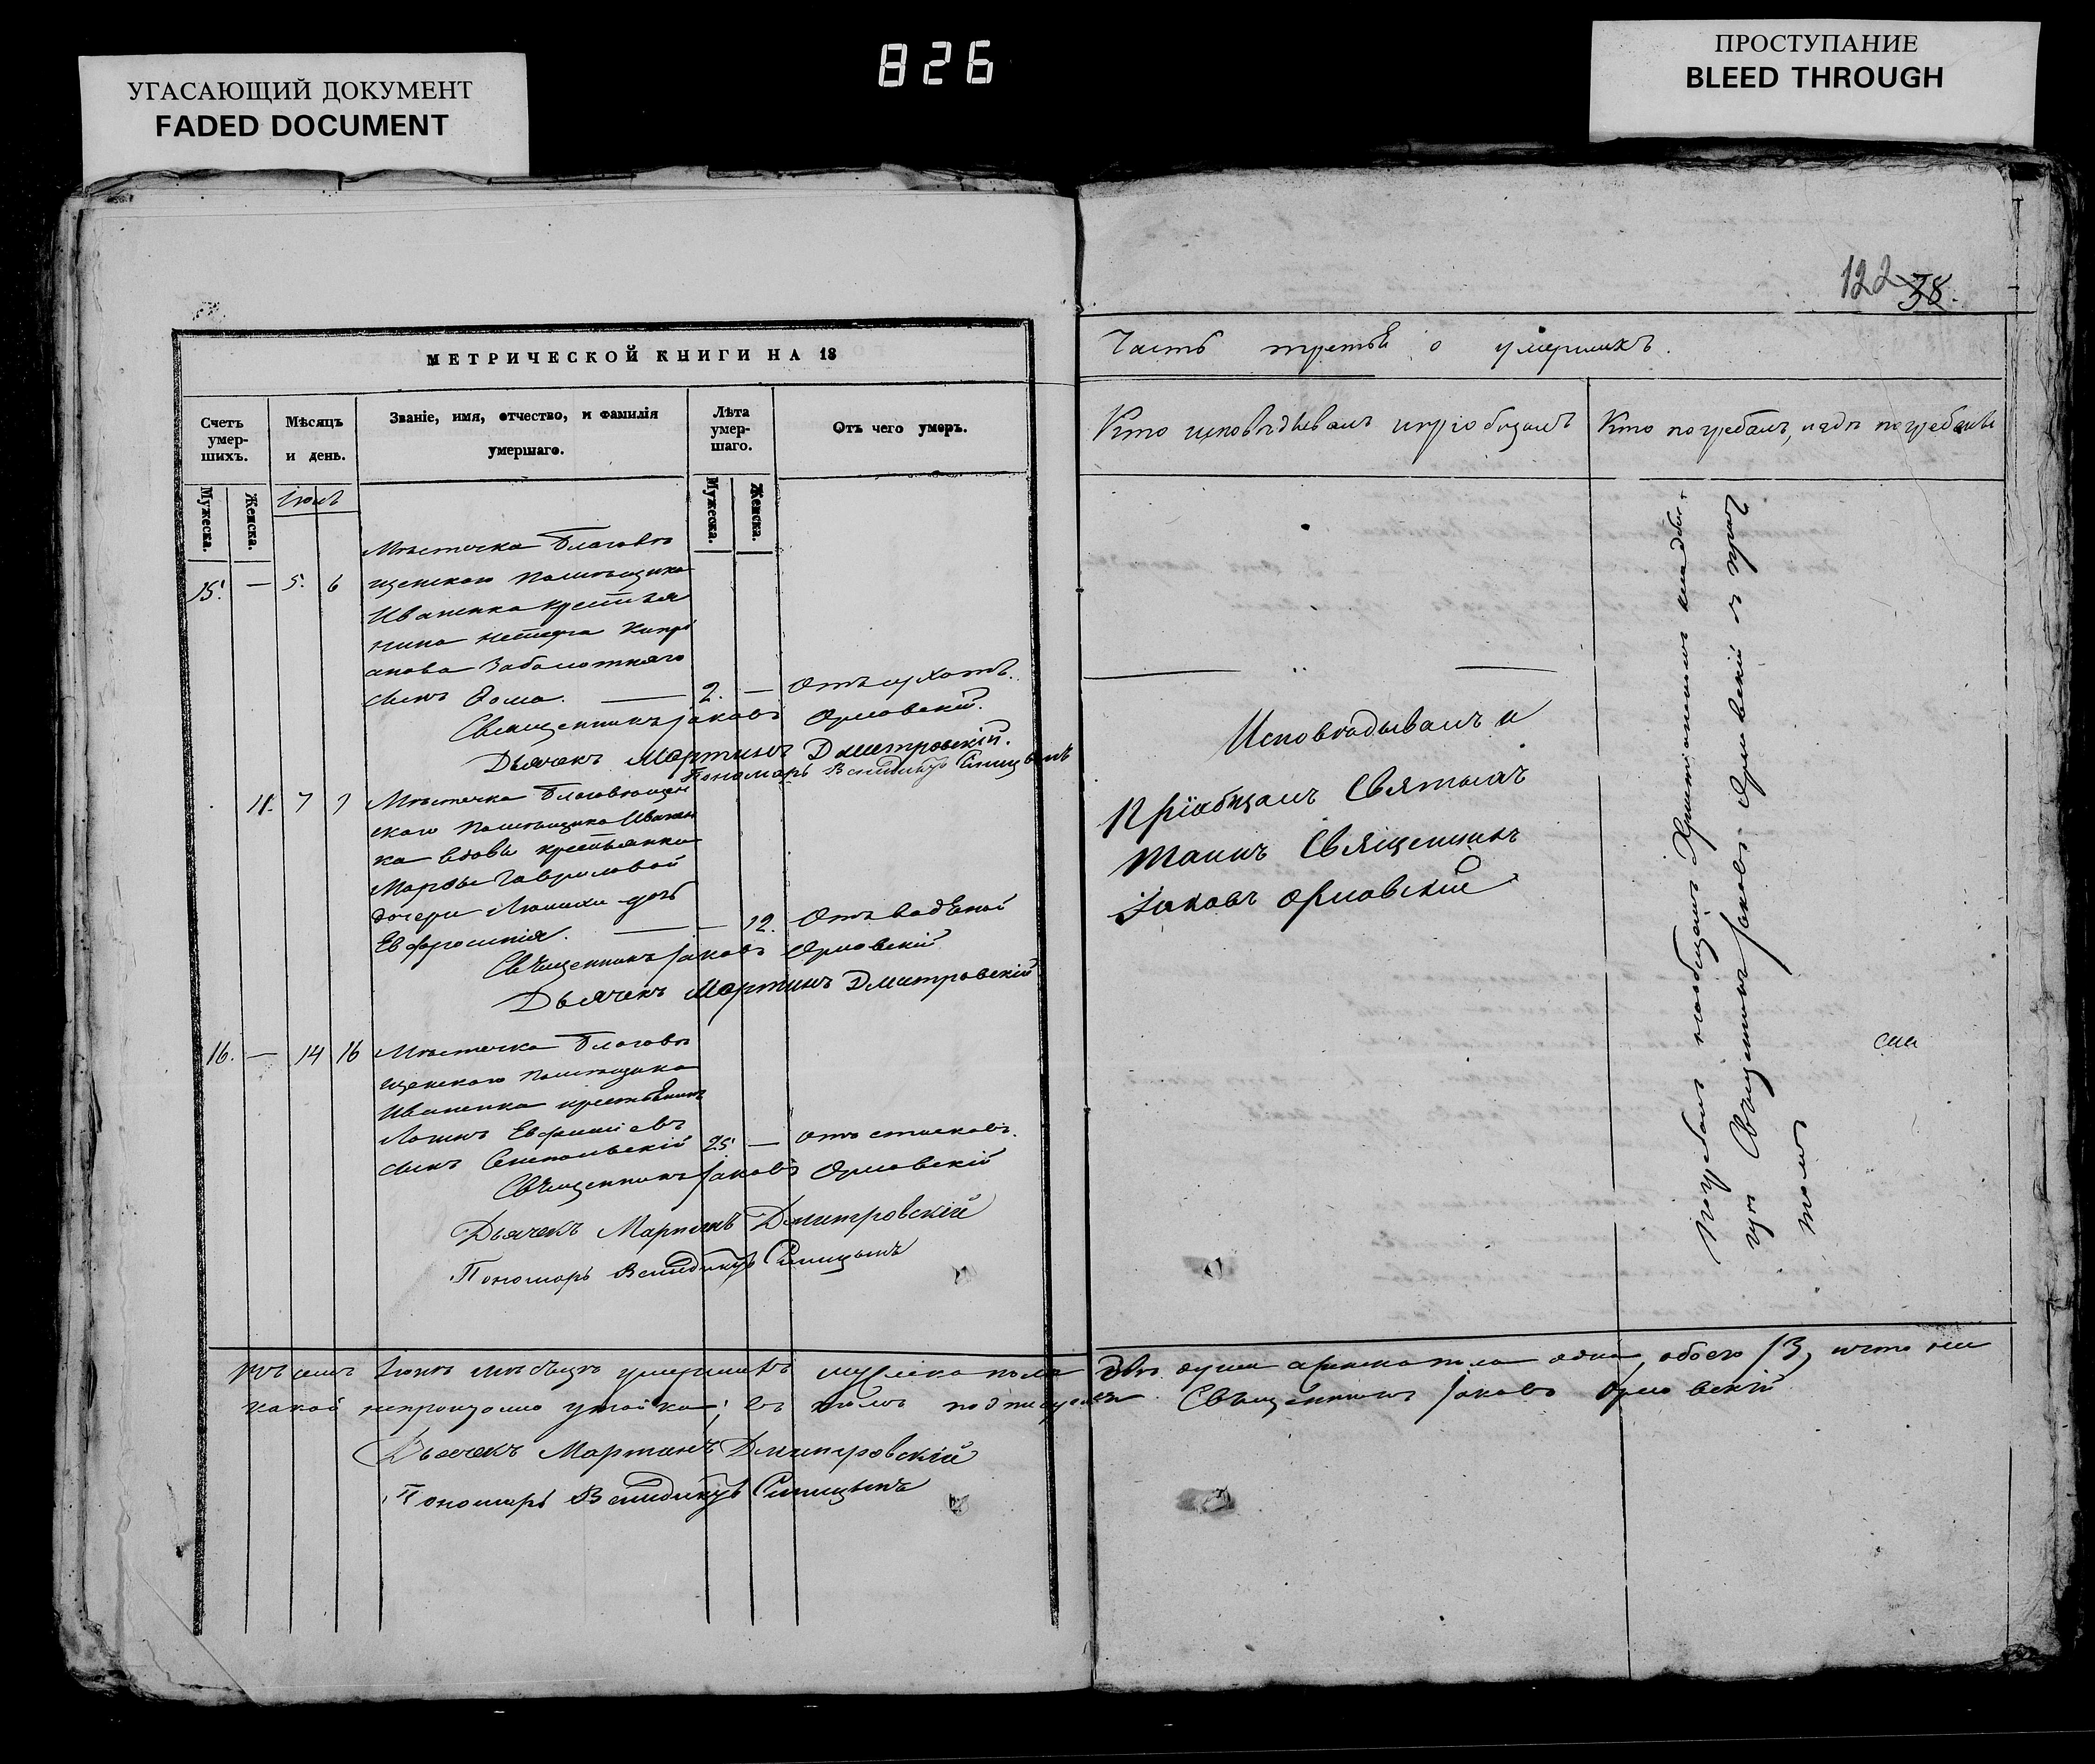 826
УГАСАЮЩИЙ ДОКУМЕНТ
FADED DOCUMENT
ПРОСТУПАНИЕ
BLEED THROUGH
122 38.
МЕТРИЧЕСКОЙ КНИГИ НА 18
Часть третья о умершихъ.
Счетъ умер-шихъ.
Мѣсяцъ и день.
Званіе, имя, отчество, и фамилія умершаго.
Лѣта умер-шаго.
Отъ чего умеръ.
Кто исповѣдывалъ и пріобщалъ
Кто погребалъ, и гдѣ погребены
Мужеска.
Женска.
Мужеска.
Женска.
Мѣстечка Благовѣ
15. — 5. 6 щенскаго помѣщика
Иваненка крестья
нина Нестера Кипрі
анова Заболотняго
сынъ Фома. — 2. —
Священникъ Іаковъ Орловскій.
Дьячекъ Мартинъ Дмитровскій.
Пономарь Синицынъ
11. 7 7 Мѣстечка Благовѣщен
скаго помѣщика Иванен
ка вдовы крестьянки
Марфы Гавриловой
дочери дочь
Евфросинія. — — 12. Отъ водяной
Священникъ Іаковъ Орловскій
Дьячекъ Мартинъ Дмитровскій
16. — 14 16 Мѣстечка Благовѣ
щенскаго помѣщика
Иваненка крестьянинъ
Евфиміевъ
сынъ 25 — отъ
Священникъ Іаковъ Орловскій
Дьячекъ Мартинъ Дмитровскій
Пономарь Синицынъ
Исповѣдывалъ и
Пріобщалъ Святыхъ
Таинъ Священникъ
Іаковъ Орловскій
Погребалъ на общемъ Христіанскомъ кладби
щѣ Священникъ Іаковъ Орловскій съ прич
томъ
мѣсяцѣ умершихъ мужеска пола двѣ души а женска пола одна, обоего /3, и что ни
какой непроизошло утайки; въ томъ подписуемся Священникъ Іаковъ Орловскій
Дьячекъ Мартинъ Дмитровскій
Пономарь Синицынъ